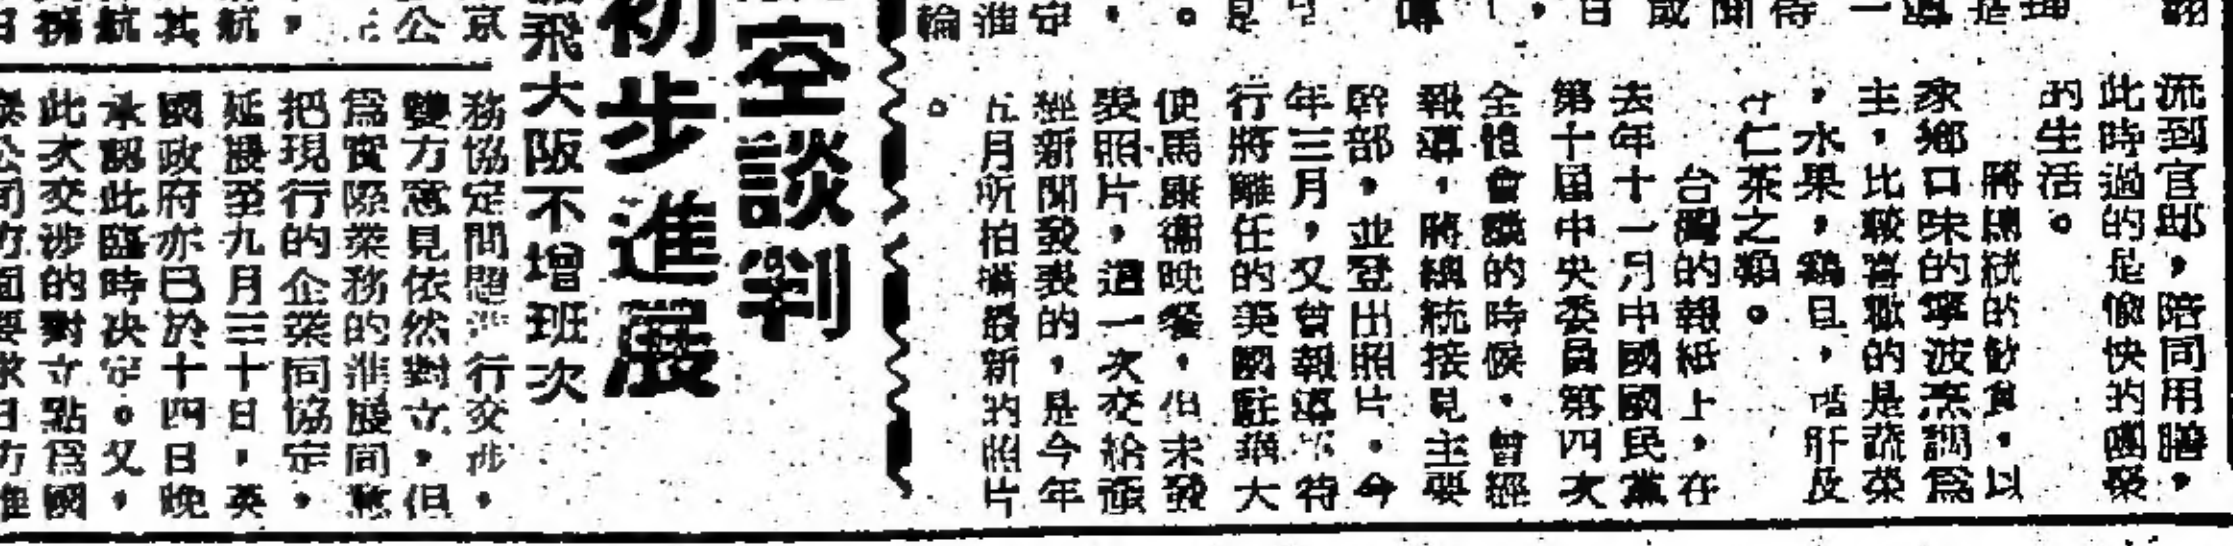 流到官邸，陪同用膳，
此時過的是愉快的團聚
的生活。
將總統的飲食，以
家鄉口味的寧波烹調爲
主，比較喜歡的是蔬菜
，水果，鷄旦，肝及
仁茶之類。
台灣的報紙上，在
去年十一月中國國民黨
第十屆中央委員第四次
全體會議的時候，曾經
報導，將總統接見主要
幹部，並登出照片。今
年三月，又曾報導 待
行將離任的美國駐華大
使馬康衛晚餐，但未發
表照片，這一次交給
經新聞發表的，是今年
五月所拍攝最新的照片
。
空談判
初步進展
飛大阪不增班次
京
公
，
航
其
航
務協定問題進行交涉，
雙方意見依然對立，但
爲實際業務的進展同意
把現行的企業同協定，
延展至九月三十日，英
國政府亦已於十四日晚
承認此臨時決定。又，
此次交涉的對立點爲國
公司方面要求日方准